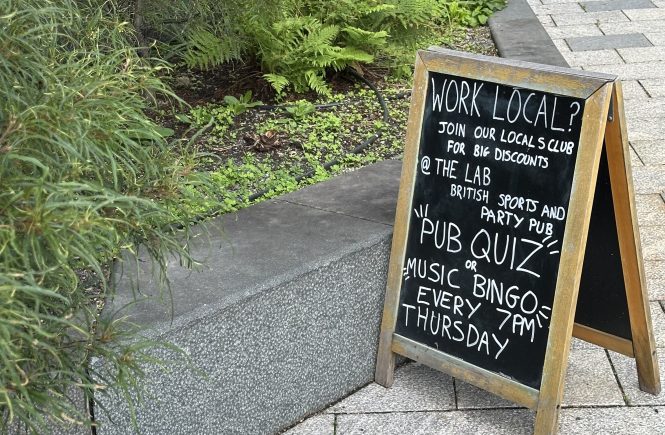 WORK LOCAL?
JOIN OUR LOCALS CLUB
FOR BIG DISCOUNTS
@ THE LAB
BRITISH SPORTS AND
PARTY PUB
PUB QUIZ
OR
MUSIC BINGO
EVERY 7PM
THURSDAY